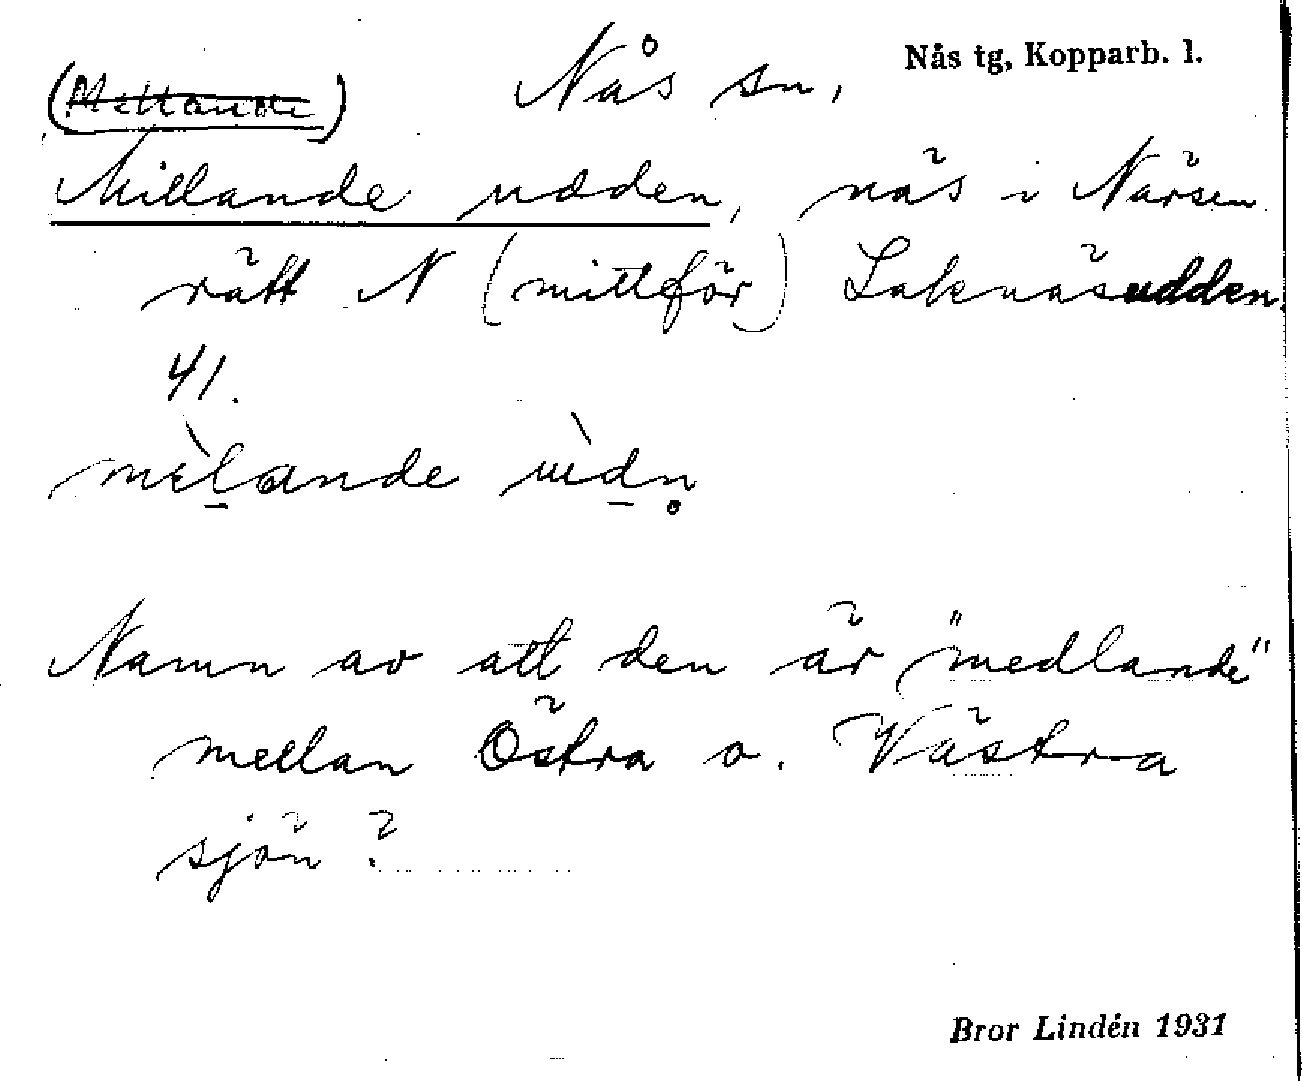 Nås tg, Kopparb. l.
(Millande) Nås sn,
Millande udden, näs i Närsen
rätt N (mittför) Laknäsudden.
41.
mèlande ùdn̥
Namn av att den är "medlande"
mellan Östra o. Västra
sjön?
Bror Lindén 1931